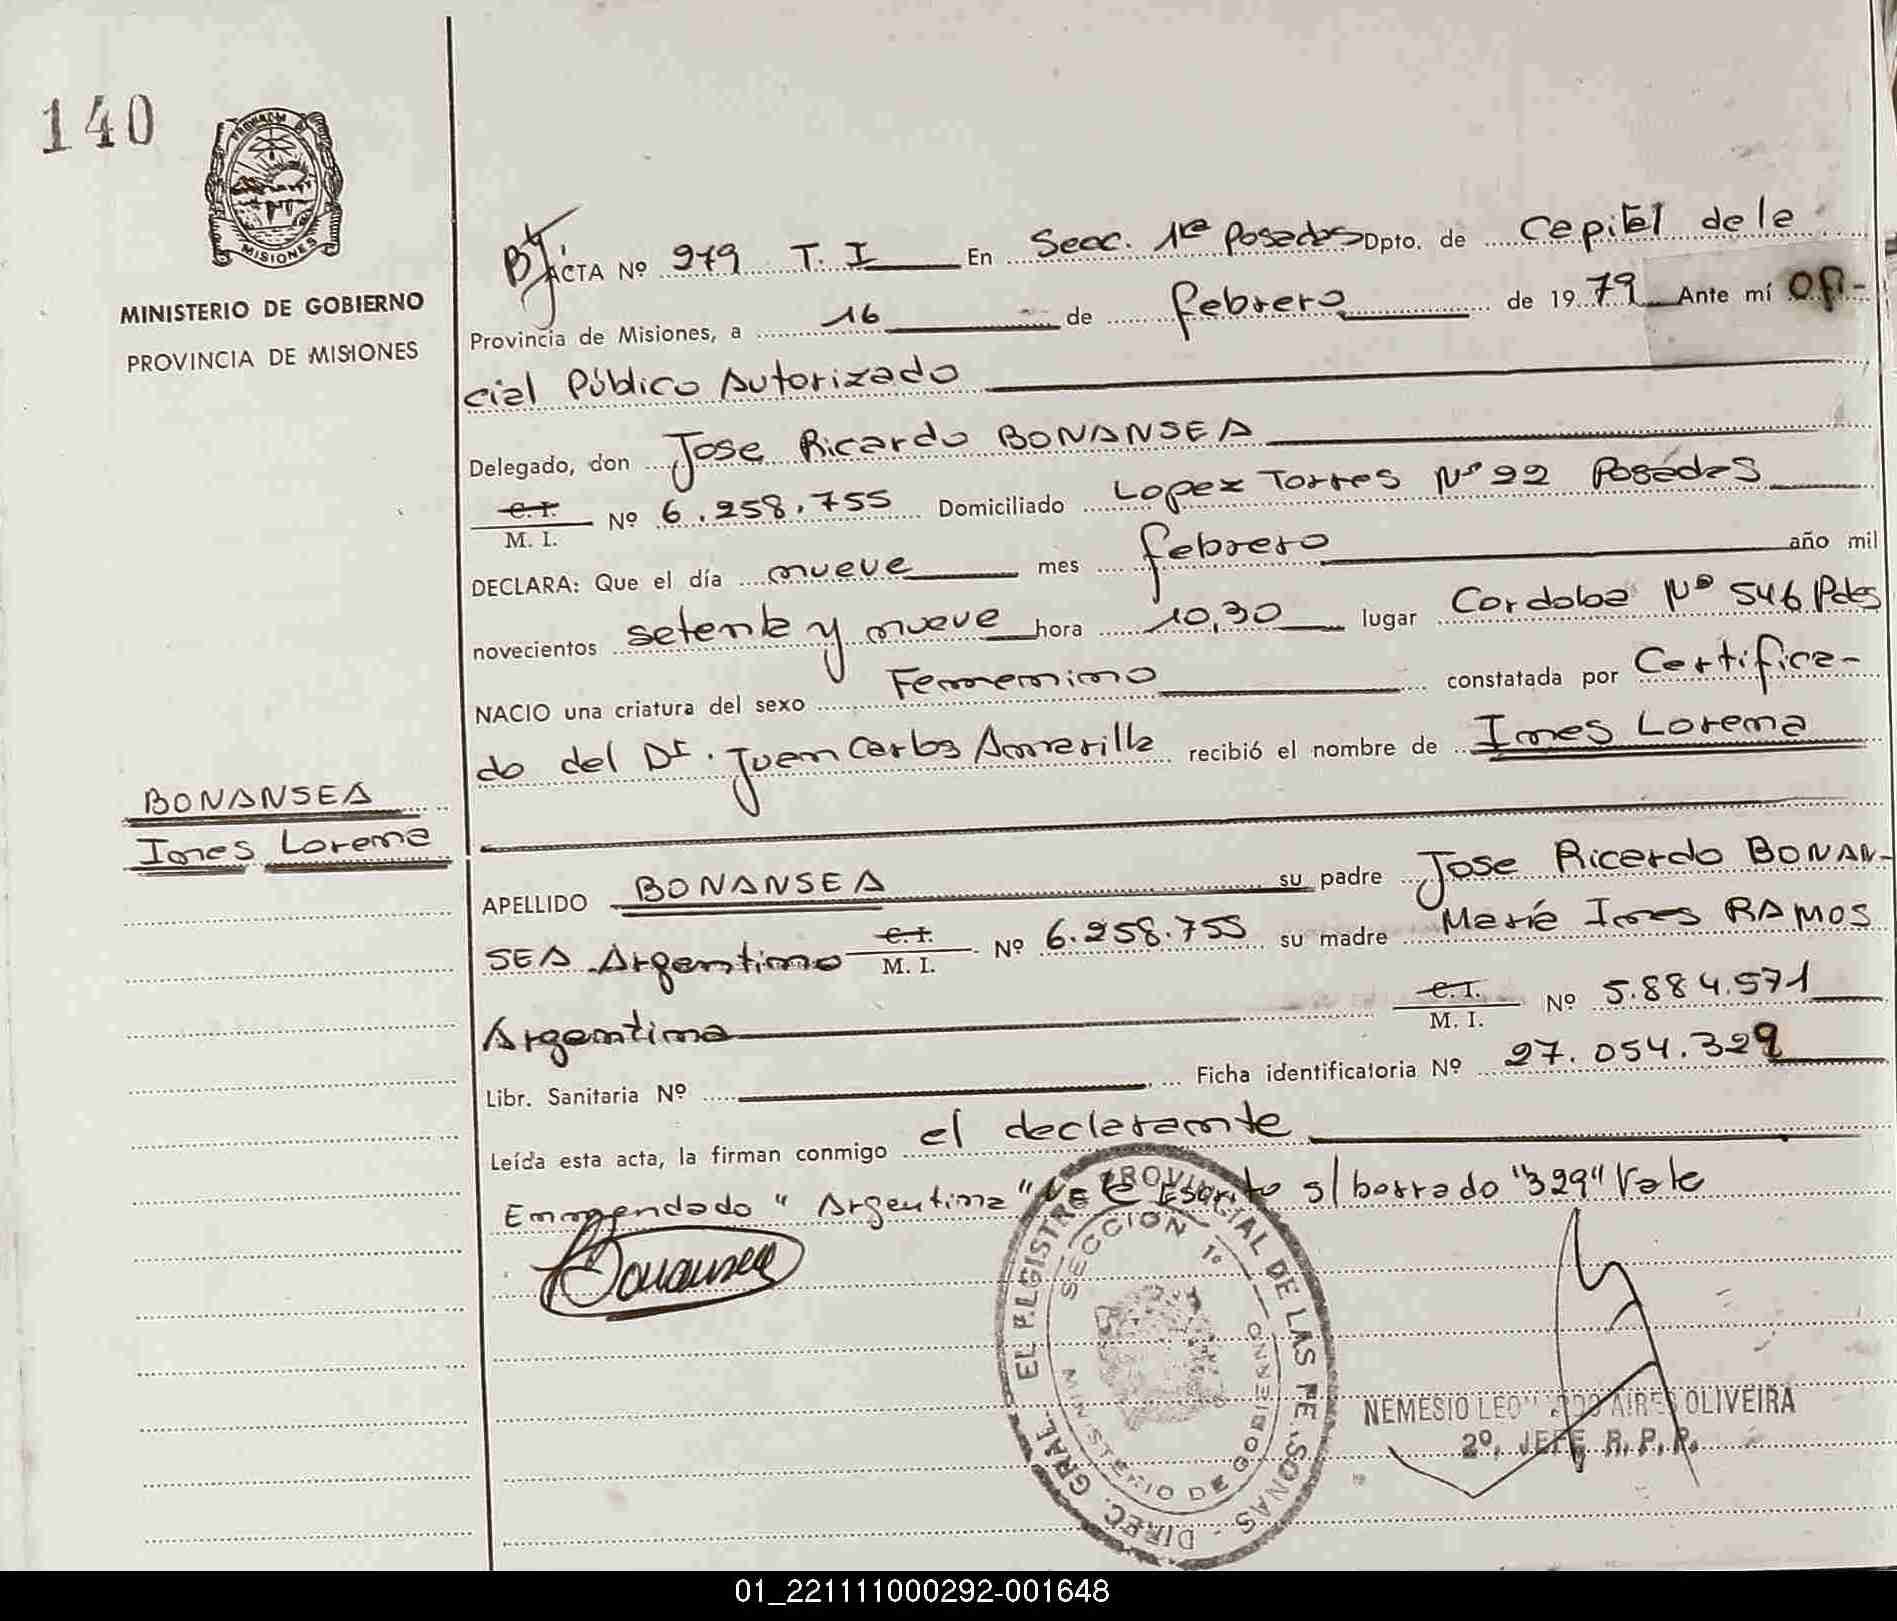 140
PROVINCIA D
MISIONES
MINISTERIO DE GOBIERNO
PROVINCIA DE MISIONES
ACTA Nº 979 T. I En Secc. 1ra Posadas Dpto. de Capital de la
Provincia de Misiones, a 16 de febrero de 1979 Ante mí Ofi-
cial Público Autorizado
Delegado, don Jose Ricardo BONANSEA
C.I. M. I. Nº 6.258.755 Domiciliado Lopez Torres Nº 22 Posadas
DECLARA: Que el día nueve mes febrero año mil
novecientos setenta y nueve hora 10,30 lugar Cordoba Nº 546 Pdas
NACIO una criatura del sexo Femenino constatada por Certifica-
do del Dr. Juan Carlos Amarilla recibió el nombre de Ines Lorena
BONANSEA
Ines Lorena
APELLIDO BONANSEA su padre Jose Ricardo BONAN-
SEA Argentino C.I. M. I. Nº 6.258.755 su madre María Ines RAMOS
Argentina C.I. M. I. Nº 5.884.571
Libr. Sanitaria Nº Ficha identificatoria Nº 27.054.329
Leída esta acta, la firman conmigo el declarante
Enmendado "Argentina" Vale Escrito s/borrado "329" Vale
Bonansea
DIREC. GRAL. EL REGISTRO PROVINCIAL DE LAS PERSONAS
SECCION 1º
MINISTERIO DE GOBIERNO
NEMESIO AIRES OLIVEIRA
2º. JEFE R. P. P.
01_221111000292-001648